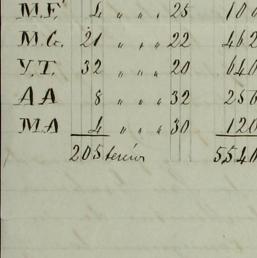 M.F. 4 " " " 25 100
M.G. 21 " " " 22 462
Y.T. 32 " " " 20 640
AA 8 " " " 32 256
MA 4 " " " 30 120
205 tercios 5540